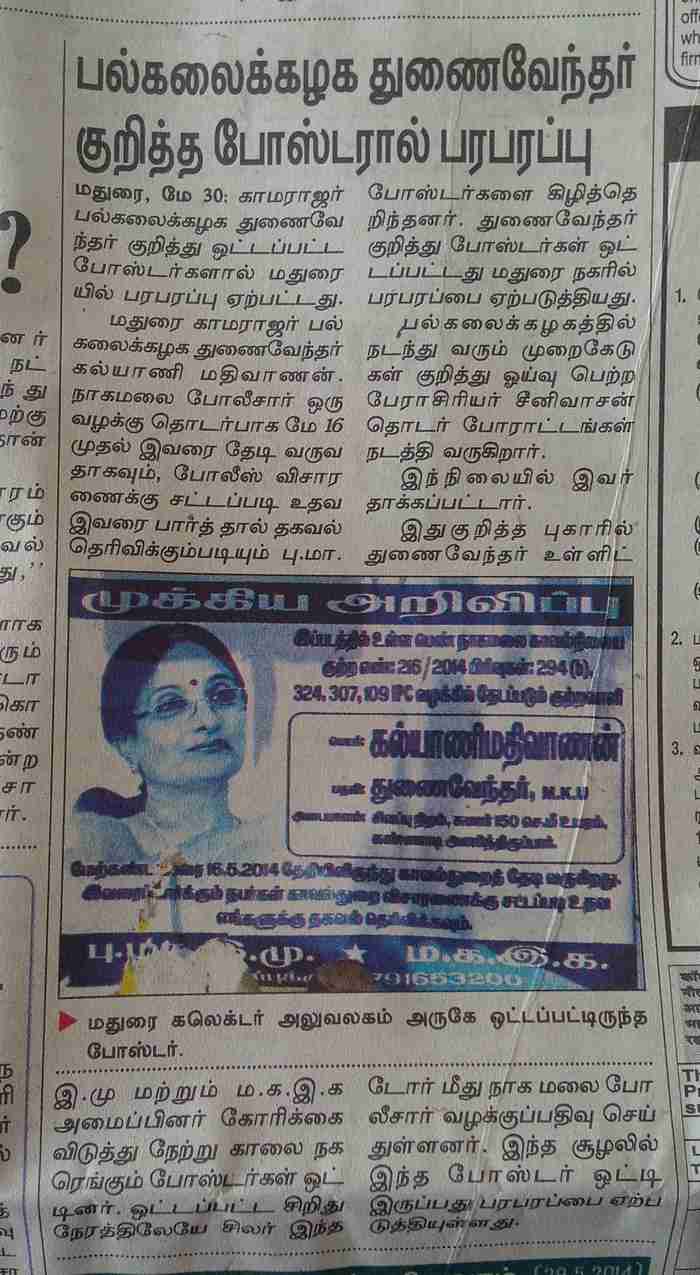 பல்கலைக்கழக துணைவேந்தர்
குறித்த போஸ்டரால் பரபரப்பு
மதுரை, மே 30: காமராஜர்
பல்கலைக்கழக துணைவே
ந்தர் குறித்து ஒட்டப்பட்ட
போஸ்டர்களால் மதுரை
யில் பரபரப்பு ஏற்பட்டது.
மதுரை காமராஜர் பல்
கலைக்கழக துணைவேந்தர்
கல்யாணி மதிவாணன்.
நாகமலை போலீசார் ஒரு
வழக்கு தொடர்பாக மே 16
முதல் இவரை தேடி வருவ
தாகவும், போலீஸ் விசார
ணைக்கு சட்டப்படி உதவ
இவரை பார்த் தால் தகவல்
தெரிவிக்கும்படியும் பு.மா.
இ.மு மற்றும் ம.க.இ.க
அமைப்பினர் கோரிக்கை
விடுத்து நேற்று காலை நக
ரெங்கும் போஸ்டர்கள் ஒட்
டினர். ஒட்டப்பட்ட சிறிது
நேரத்திலேயே சிலர் இந்த
போஸ்டர்களை கிழித்தெ
றிந்தனர். துணைவேந்தர்
குறித்து போஸ்டர்கள் ஒட்
டப்பட்டது மதுரை நகரில்
பரபரப்பை ஏற்படுத்தியது.
பல்கலைக்கழகத்தில்
நடந்து வரும் முறைகேடு
கள் குறித்து ஓய்வு பெற்ற
பேராசிரியர் சீனிவாசன்
தொடர் போராட்டங்கள்
நடத்தி வருகிறார்.
இந்நிலையில் இவர்
தாக்கப்பட்டார்.
இதுகுறித்த புகாரில்
துணைவேந்தர் உள்ளிட்
டோர் மீது நாக மலை போ
லீசார் வழக்குப்பதிவு செய்
துள்ளனர். இந்த சூழலில்
இந்த போஸ்டர் ஒட்டி
இருப்பது பரபரப்பை ஏற்ப
டுத்தியுள்ளது.
முக்கிய அறிவிப்பு
இப்படத்தில் உள்ள பெண் நாகமலை காவல்நிலைய
குற்ற எண்: 216/2014 பிரிவுகள்: 294 (b),
324, 307, 109 IPC வழக்கில் தேடப்படும் குற்றவாளி
பெயர்: கல்யாணிமதிவாணன்
பதவி: துணைவேந்தர், M.K.U
அடையாளம்: சிவப்பு நிறம், சுமார் 150 செ.மீ உயரம்,
கண்ணாடி அணிந்திருப்பார்.
மேற்கண்ட 16.5.2014 தேதியிலிருந்து காவல்துறைத் தேடி வருகிறது.
நபர்கள் காவல்துறை விசாரணைக்கு சட்டப்படி உதவ
எங்களுக்கு தகவல் தெரிவிக்கவும்.
மு. ★ ம.க.இ.க.
791653200
மதுரை கலெக்டர் அலுவலகம் அருகே ஒட்டப்பட்டிருந்த
போஸ்டர்.
(29.5.2014)